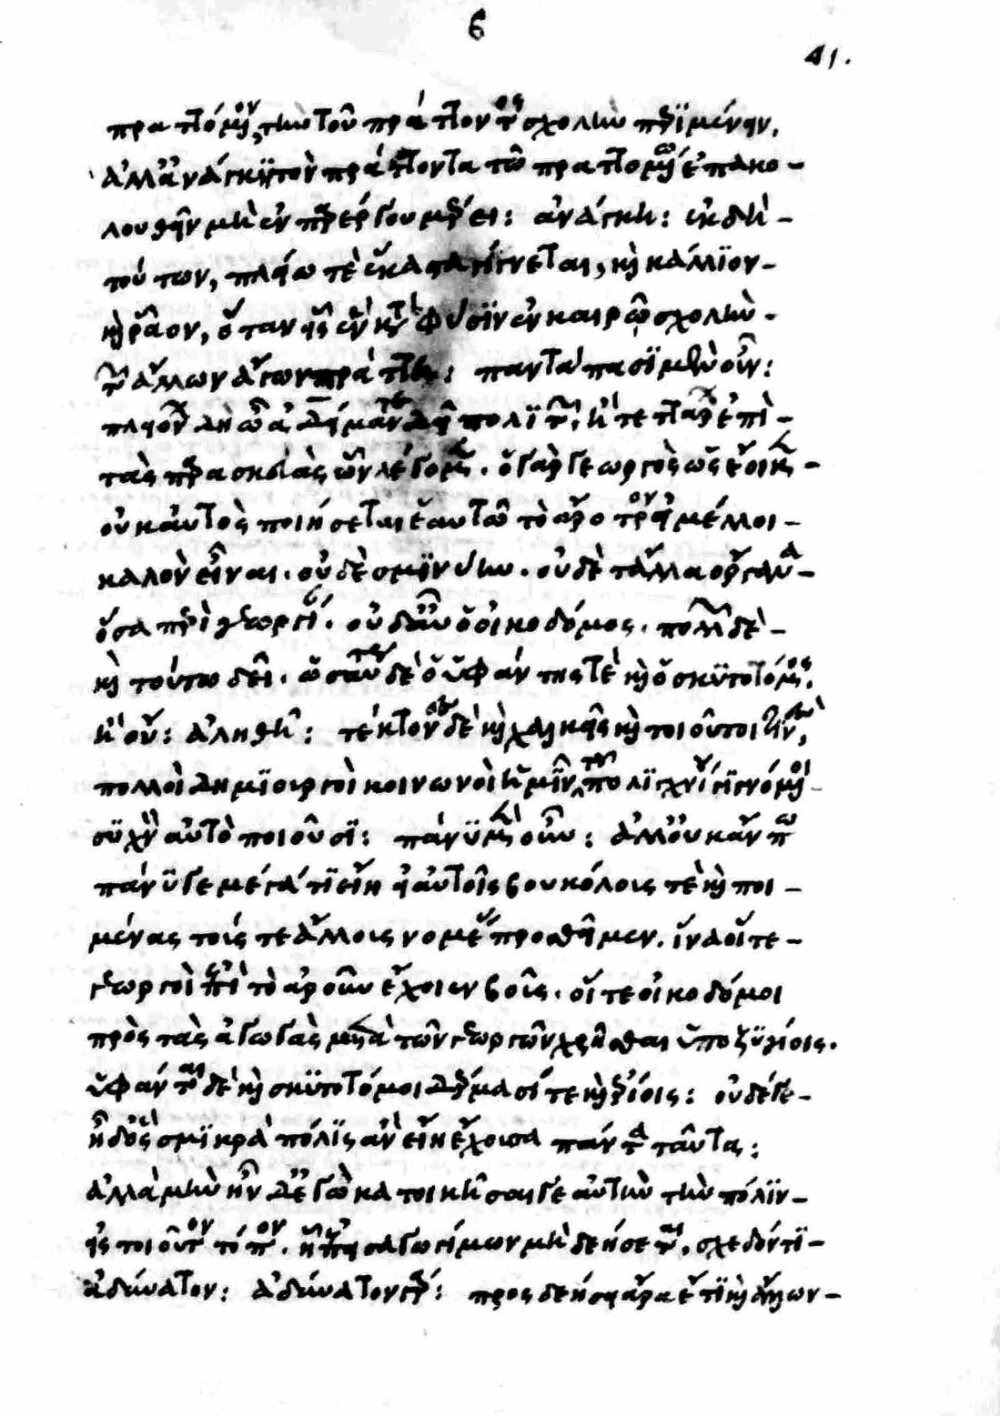 6
41.
πραττόμενον τὴν τοῦ πράττοντος σχολὴν περιμένειν,
ἀλλ' ἀνάγκη τὸν πράττοντα τῷ πραττομένῳ ἐπακο-
λουθεῖν μὴ ἐν παρέργου μέρει: ἀνάγκη: ἐκ δὴ
τούτων, πλείω τὲ ἕκαστα γίγνεται, καὶ κάλλιον
καὶ ῥᾷον, ὅταν εἷς ἓν κατὰ φύσιν ἐν καιρῷ σχολὴν
τῶν ἄλλων ἄγων πράττῃ: παντάπασι μὲν οὖν:
πλειόνων δὴ ὦ ἀδείμαντε δεῖ πολιτῶν, ἢ τεττάρων ἐπὶ
τὰς παρασκευὰς ὧν λέγομεν. ὁ γὰρ γεωργὸς ὡς ἔοικεν
οὐκ αὐτὸς ποιήσεται ἑαυτῷ τὸ ἄροτρον εἰ μέλλοι
καλὸν εἶναι. οὐδὲ σμινύην. οὐδὲ τἆλλα ὄργανα
ὅσα περὶ γεωργίαν. οὐδ' αὖ ὁ οἰκοδόμος. πολλῶν δὲ
καὶ τούτῳ δεῖ. ὡσαύτως δὲ ὁ ὑφάντης τὲ καὶ ὁ σκυτοτόμος.
ἢ οὔ: ἀληθῆ: τέκτονες δὲ καὶ χαλκῆς καὶ τοιοῦτοί τινες,
πολλοὶ δημιουργοὶ κοινωνοὶ ἡμῖν τοῦ πολιχνίου γιγνόμενοι
συχνὸν αὐτὸ ποιοῦσι: πάνυ μὲν οὖν: ἀλλ' οὐκ ἄν πω
πάνυ γε μέγα τι εἴη εἰ αὐτοῖς βουκόλους τὲ καὶ ποι-
μένας τούς τε ἄλλους νομέας προσθεῖμεν. ἵνα οἵ τε
γεωργοὶ ἐπὶ τὸ ἀροῦν ἔχοιεν βοῦς. οἵ τε οἰκοδόμοι
πρὸς τὰς ἀγωγὰς μετὰ τῶν γεωργῶν χρῆσθαι ὑποζυγίοις.
ὑφάνται δὲ καὶ σκυτοτόμοι δέρμασί τε καὶ ἐρίοις: οὐδέ γε
ἦ δ' ὃς σμικρὰ πόλις ἂν εἴη ἔχουσα πάντα ταῦτα:
ἀλλὰ μὴν ἦν δ' ἐγὼ κατοικῆσαι γε αὐτὴν τὴν πόλιν
εἰς τοιοῦτον τόπον. ἢ ἐπεισαγωγίμων μὴ δεήσεται, σχεδόν τι
ἀδύνατον: ἀδύνατον γάρ: προσδεήσει ἄρα ἔτι καὶ ἄλλων